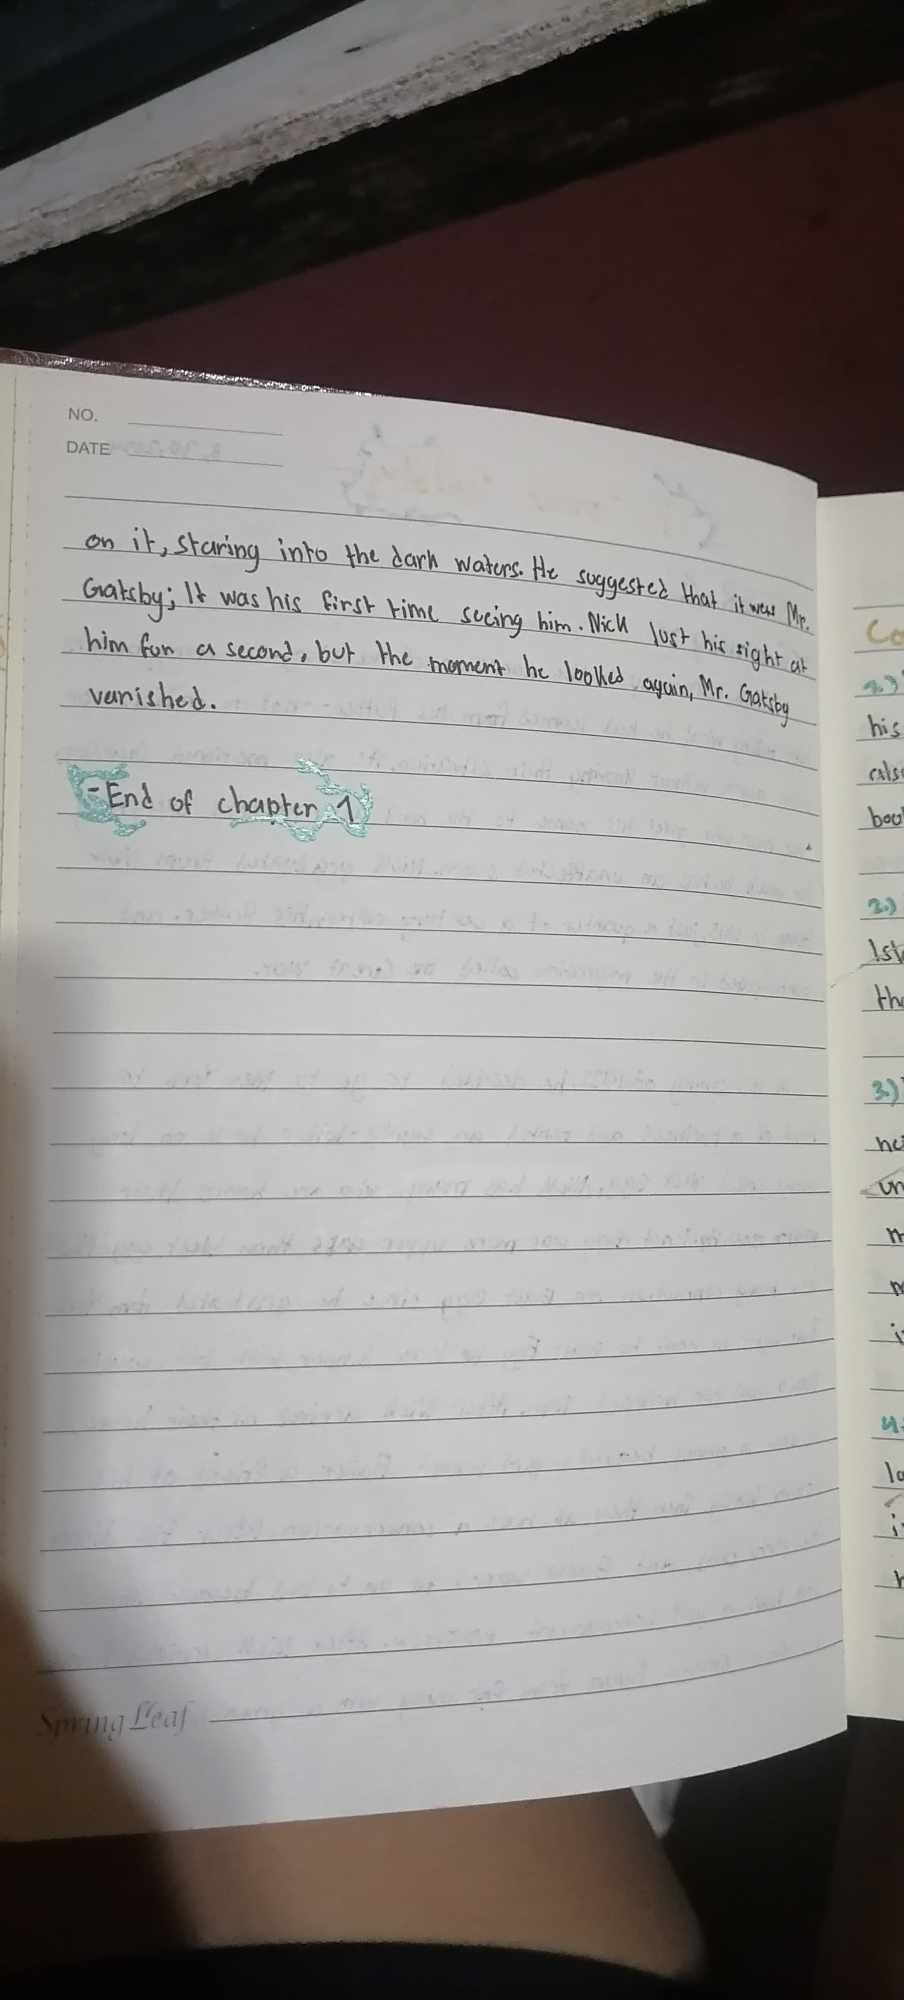 NO.
DATE
on it, staring into the dark waters. He suggested that it was Mr.
Gatsby; It was his first time seeing him. Nick lost his sight at
him for a second, but the moment he looked again, Mr. Gatsby
vanished.
-End of chapter 1
Spring Leaf
Co
his
also
boo
2.)
1st
the
3.)
un
m
m
i
4.
lo
i